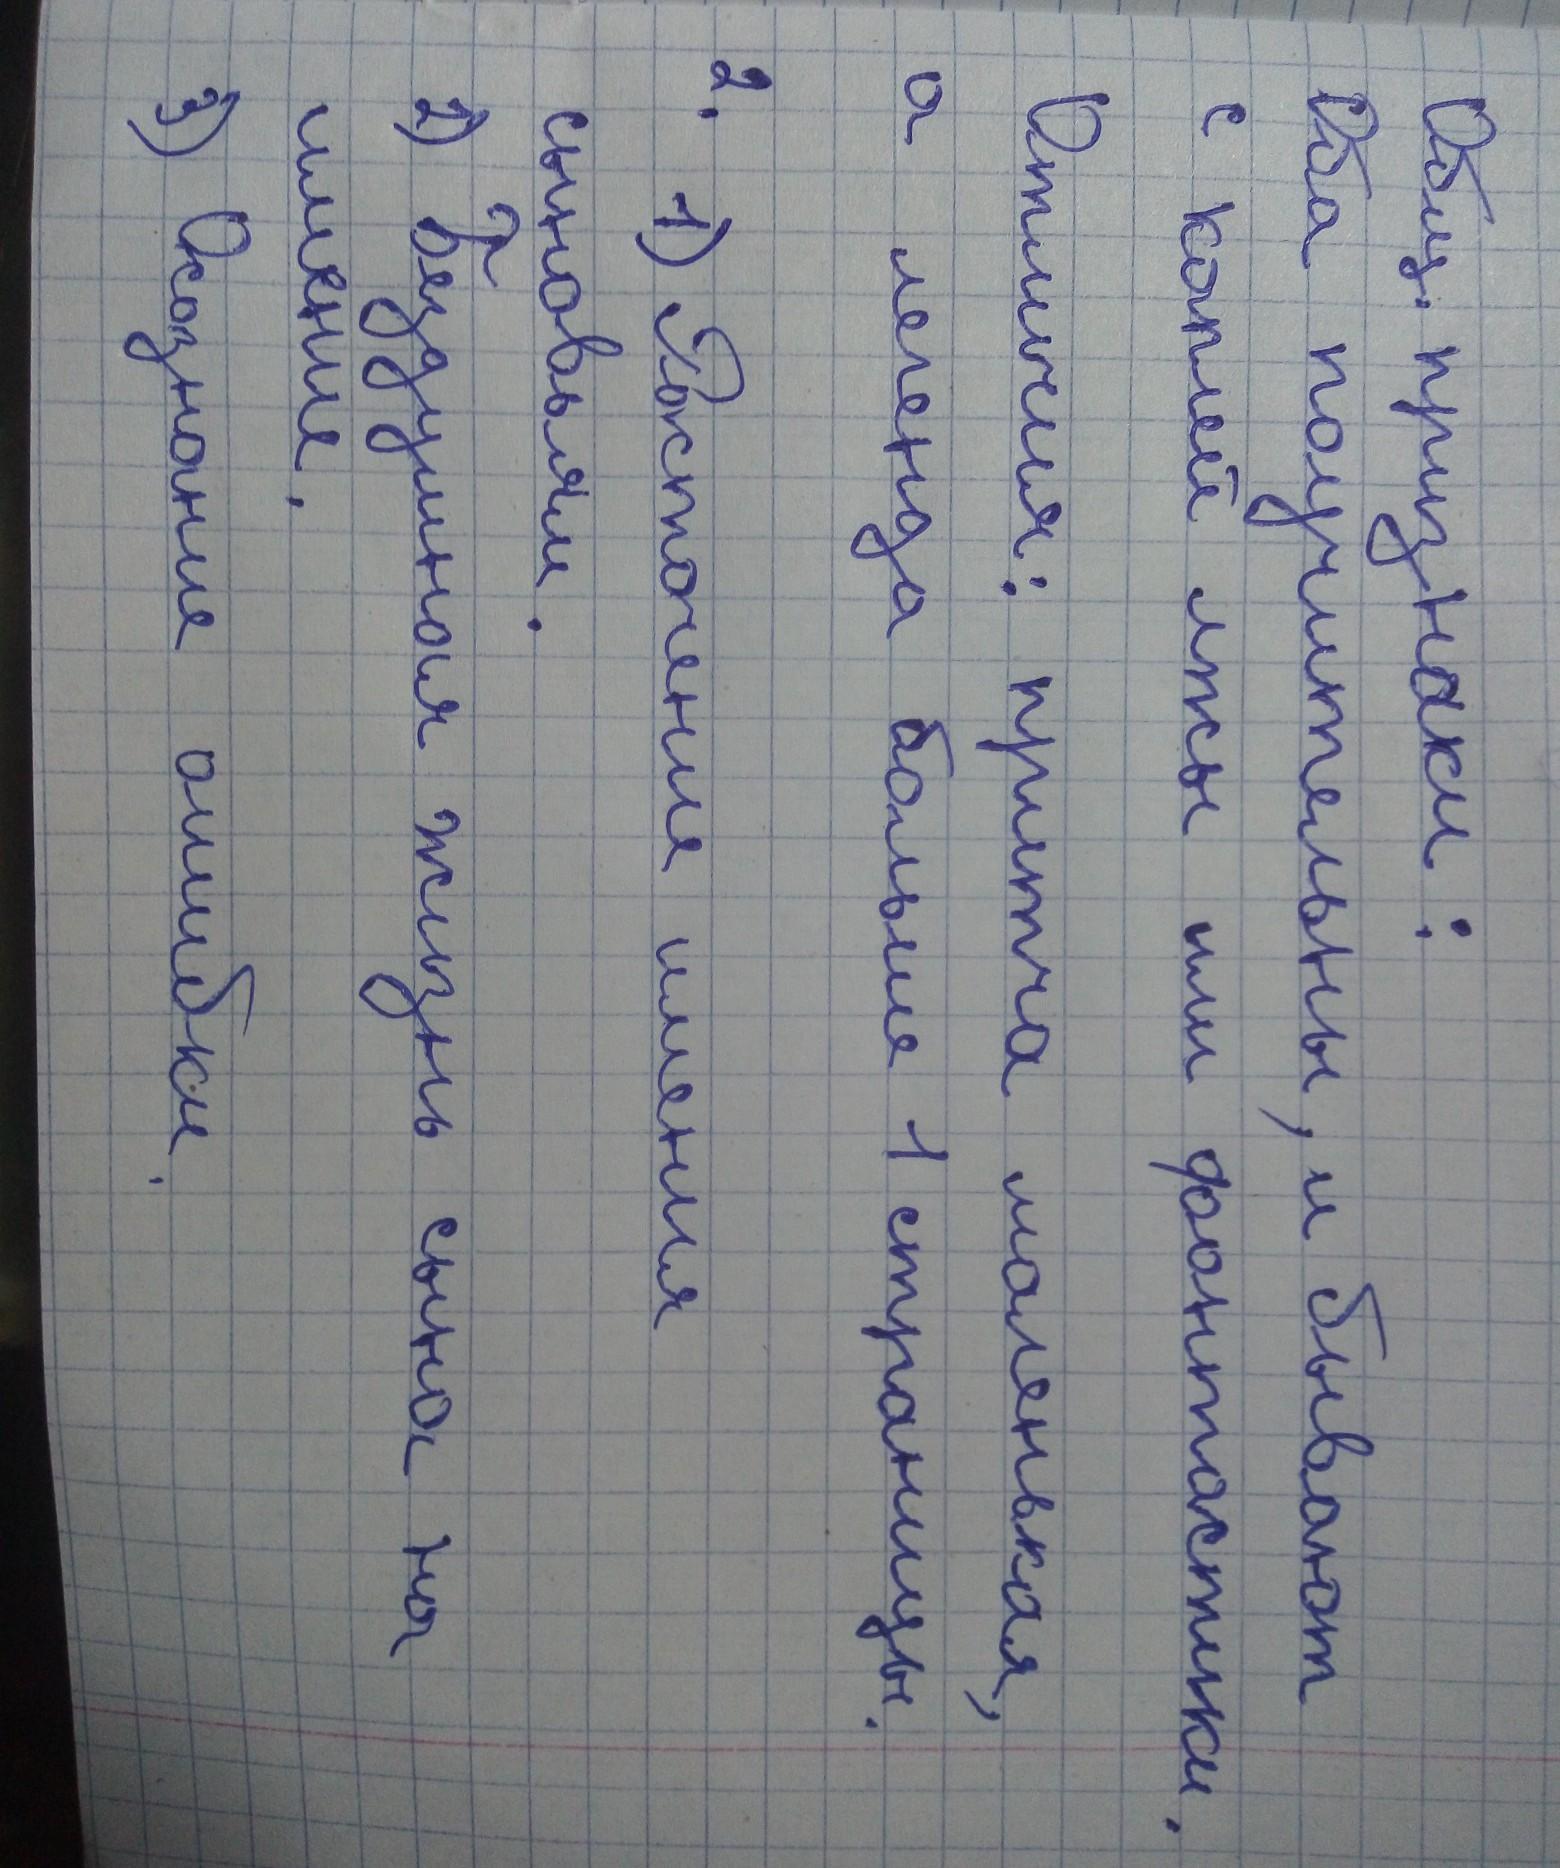 Общ. признаки:
Оба поучительны, и бывают
с каплей лжы или фантастики.
Отличия: притча маленькая,
а легенда больше 1 страницы.
2. 1) Расточения имения
сыновьями.
2) Бездумная жизнь сына на
имение.
3) Осознание ошибки.